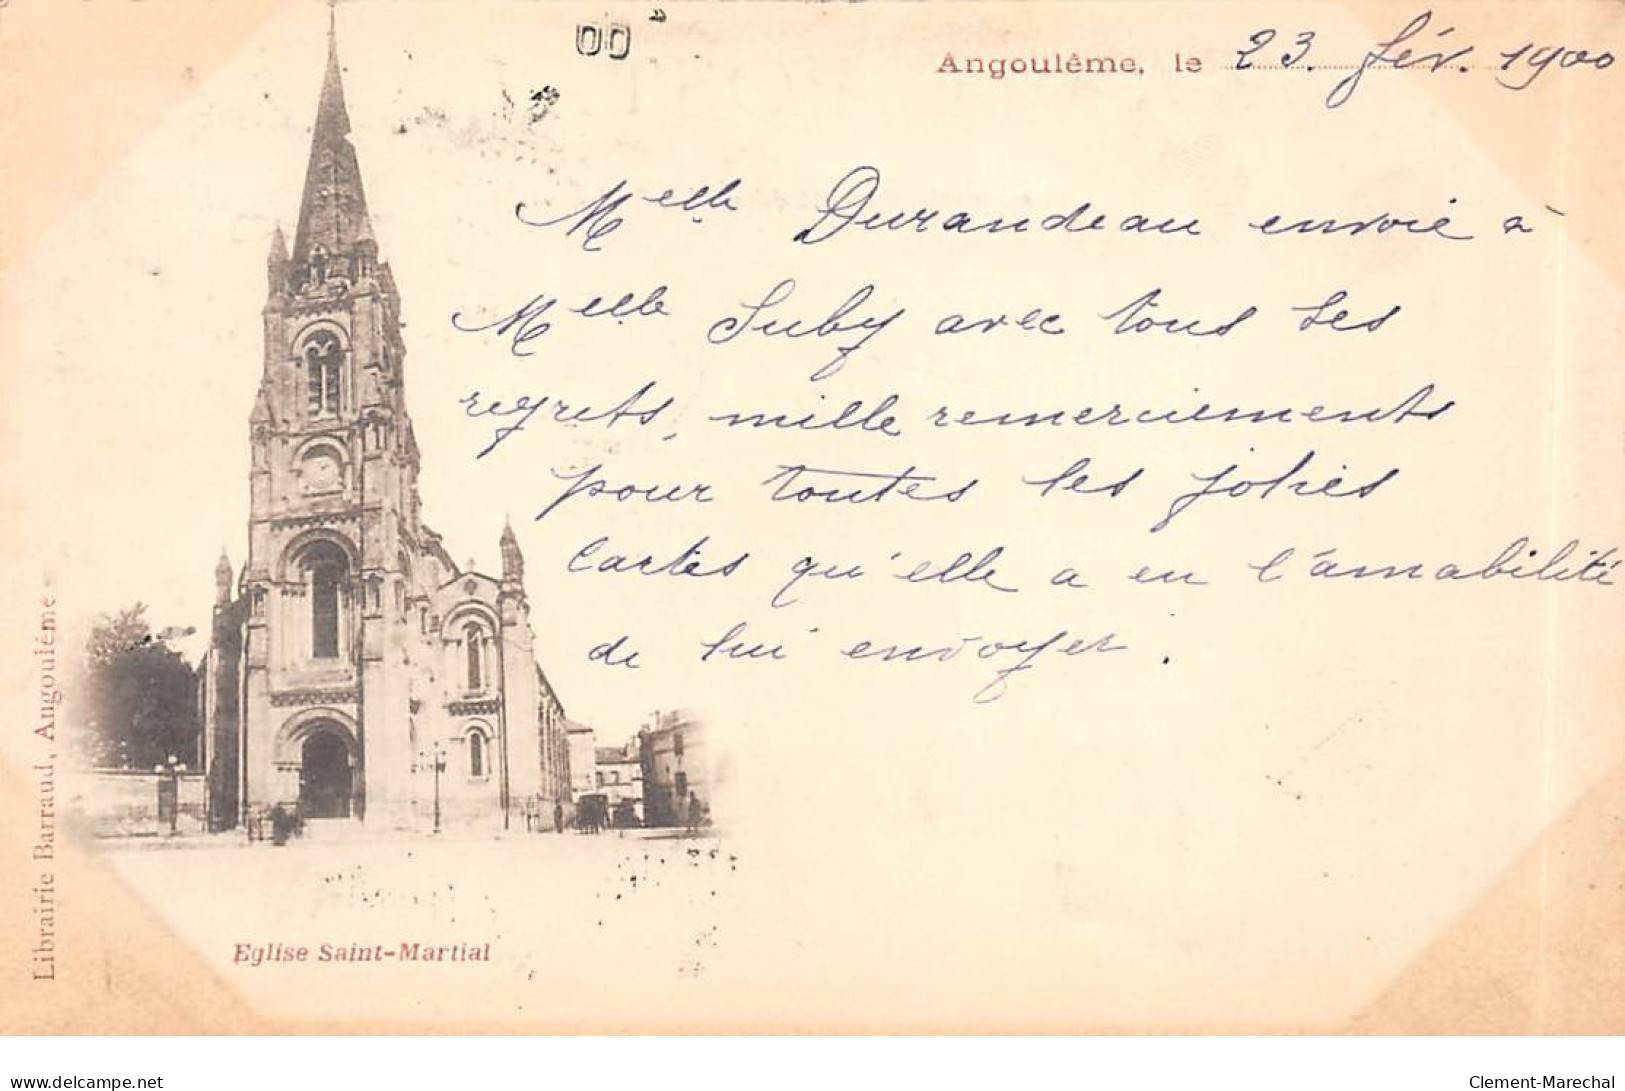 Angoulême, le 23. fév. 1900
Melle Durandeau envoie à
Melle Suby avec tous ses
regrets, mille remerciements
pour toutes les jolies
cartes qu'elle a eu l'amabilité
de lui envoyer.
Librairie Barraud, Angoulême
Eglise Saint-Martial
www.delcampe.net
Clement-Marechal